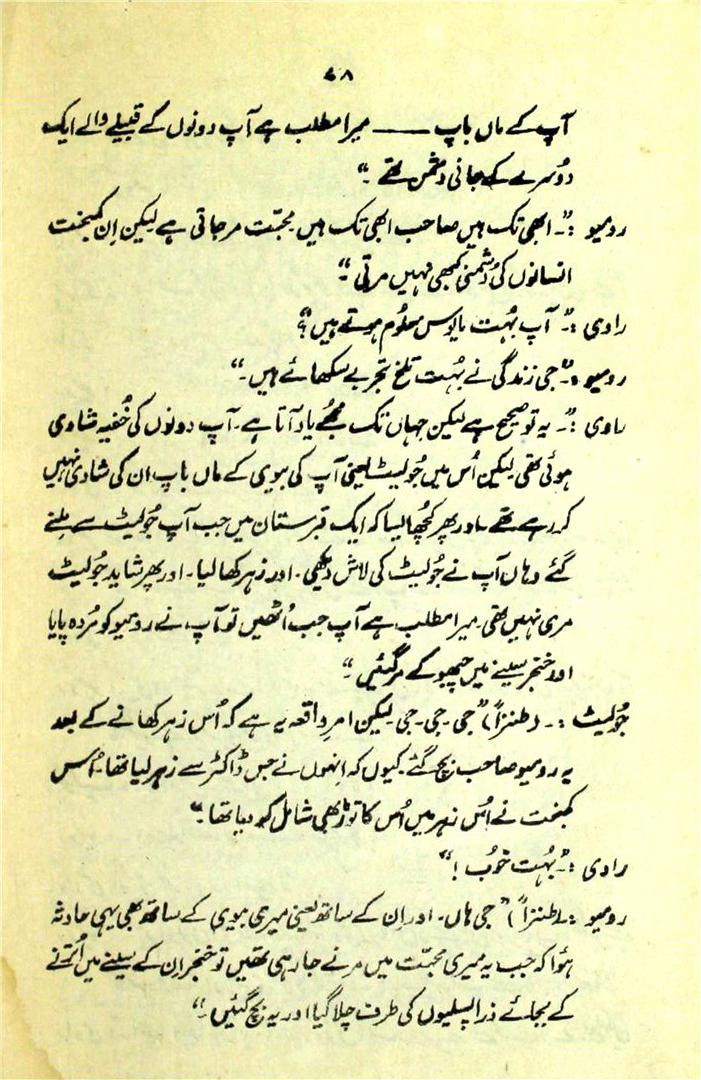 ۷۸
آپ کے ماں باپ —— میرا مطلب ہے آپ دونوں کے قبیلے والے ایک
دُوسرے کے جانی دشمن تھے ۔"
رومیو :۔" ابھی تک ہیں صاحب ابھی تک ہیں محبّت مر جاتی ہے لیکن اِن کمبخت
انسانوں کی دُشمنی کبھی نہیں مرتی ۔"
راوی :۔" آپ بُہت مایوس معلُوم ہوتے ہیں ؟"
رومیو :۔" جی زندگی نے بُہت تلخ تجربے سکھائے ہیں ۔"
راوی :۔" یہ تو صحیح ہے لیکن جہاں تک مجھے یاد آتا ہے ۔ آپ دونوں کی خُفیہ شادی
ہوئی تھی لیکن اُس میں جُولیٹ یعنی آپ کی بیوی کے ماں باپ ان کی شادی نہیں
کر رہے تھے ۔ اور پھر کچھ ایسا کہ ایک قبرستان میں جب آپ جُولیٹ سے ملنے
گئے وہاں آپ نے جُولیٹ کی لاش دیکھی ۔ اور زہر کھا لیا ۔ اور پھر شاید جُولیٹ
مری نہیں تھی ۔ میرا مطلب ہے آپ جب اُٹھیں تو آپ نے رومیو کو مُردہ پایا
اور خنجر سینے میں چبھو کے مر گئیں ۔"
جُولیٹ :۔ (طنزاً) " جی ۔ جی ۔ جی لیکن امرِ واقعہ یہ ہے کہ اُس زہر کھانے کے بعد
یہ رومیو صاحب بچ گئے ۔ کیوں کہ انہوں نے جس ڈاکٹر سے زہر لیا تھا ۔ اُس
کمبخت نے اُس زہر میں اُس کا توڑ بھی شامل کر دیا تھا ۔"
راوی :۔" بُہت خُوب !"
رومیو :۔ (طنزاً) " جی ہاں ۔ اور اِن کے ساتھ یعنی میری بیوی کے ساتھ بھی یہی حادثہ
ہُوا کہ جب یہ میری محبّت میں مرنے جا رہی تھیں تو خنجر اِن کے سینے میں اُترنے
کے بجائے ذرا پسلیوں کی طرف چلا گیا اور یہ بچ گئیں ۔"